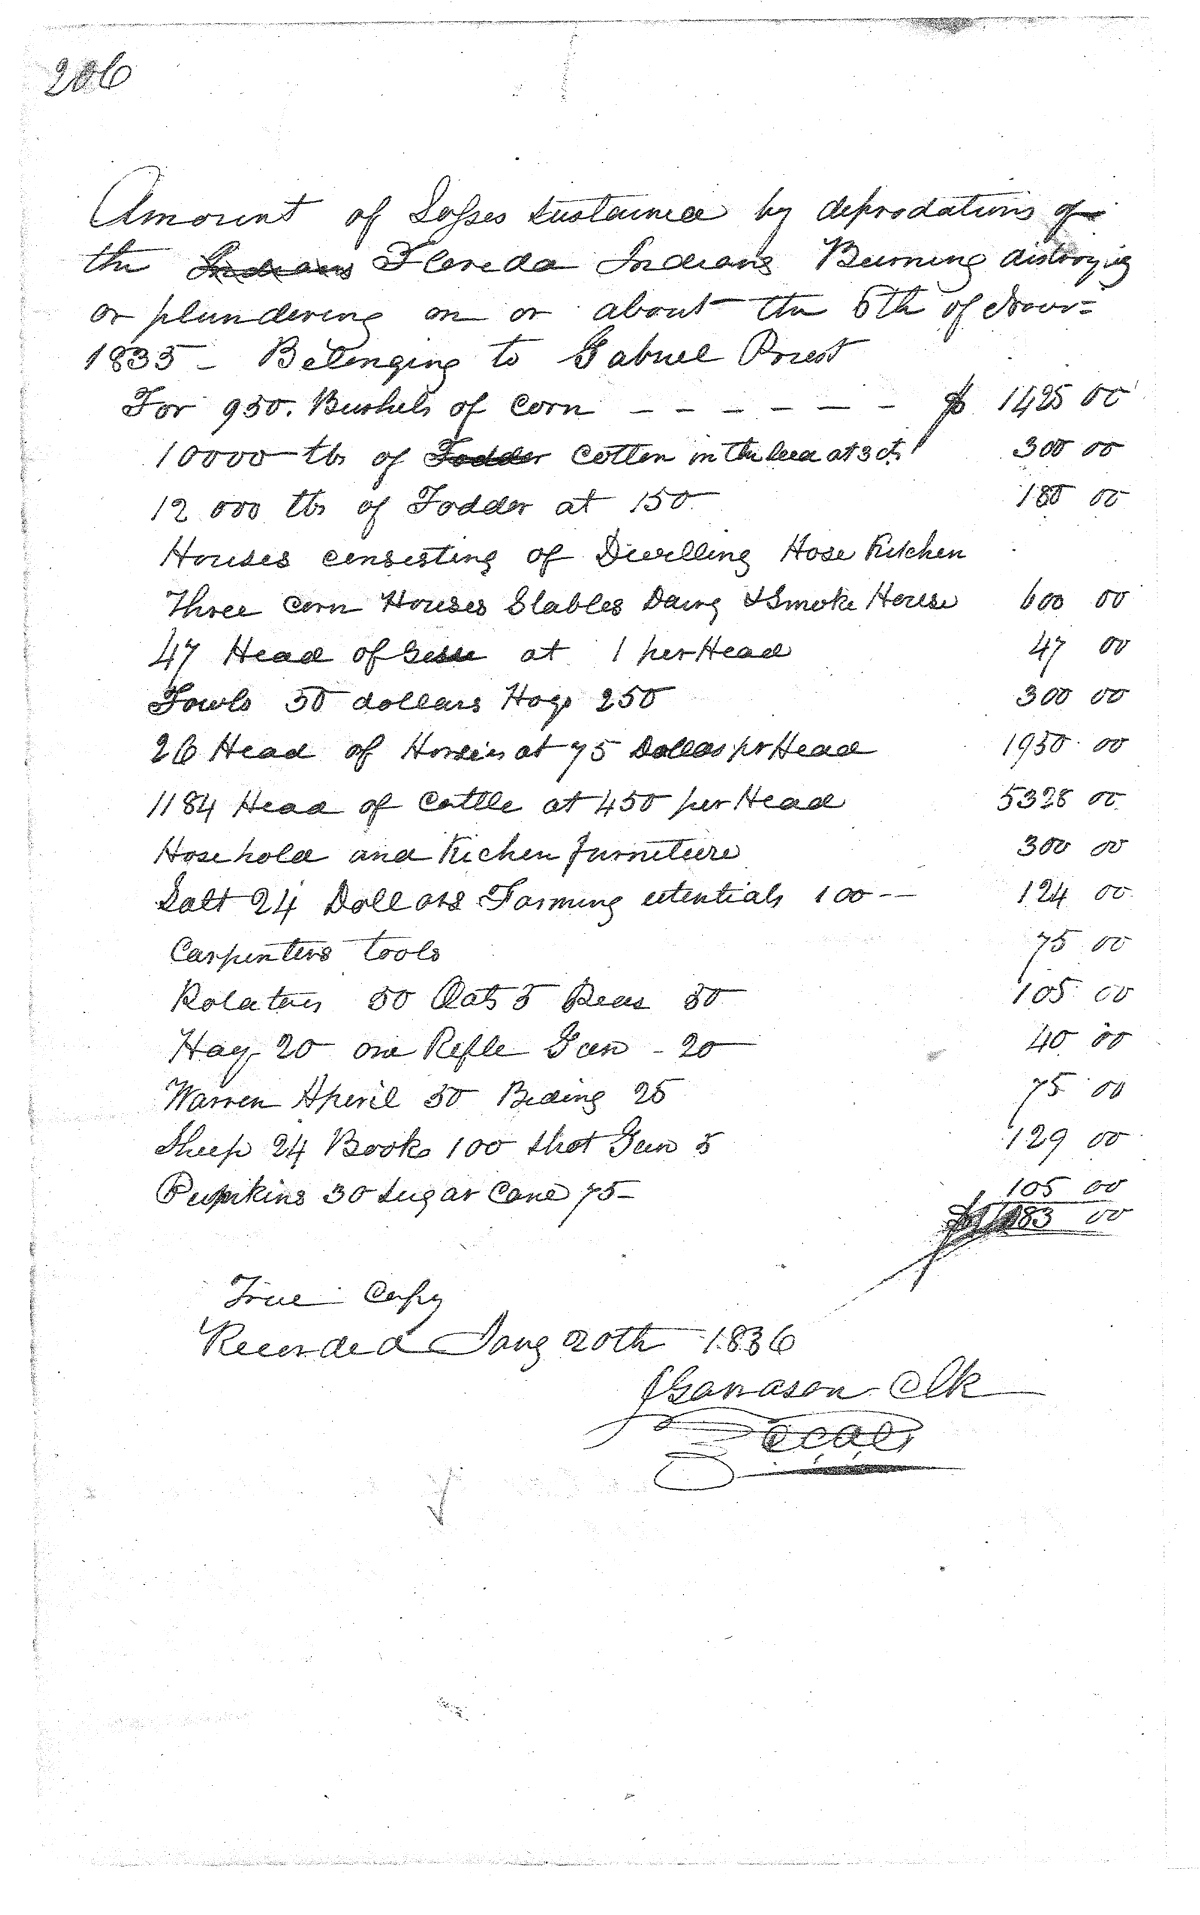 206
Amount of Losses sustained by deprodations of
the Indians Floreda Indians Burning distroying
or plundering on or about the 5th of
1835 - Belonging to Gabriel Priest
For 950. Bushels of corn - - - - - - $ 1425 00
10000 lbs of Fodder cotton in the seed at 3 cts 300 00
12 000 lbs of Fodder at 150 180 00
Houses consisting of Dwelling Hose Kitchen
Three corn Houses Stables Dairy & Smoke House 600 00
47 Head of Geese at 1 per Head 47 00
Fowls 50 dollars Hogs 250 300 00
26 Head of Horses at 75 Dollas pr Head 1950 00
1184 Head of Cattle at 450 per Head 5328 00
Hosehold and Kichen furneture 300 00
Salt 24 Dollars Farming utentials 100 -- 124 00
Carpenters tools 75 00
Potatoes 50 Oats 5 Peas 50 105 00
Hay 20 one Refle Gun - 20 40 00
75 00
Sheep 24 Books 100 shot Gun 5 129 00
Pumkins 30 sugar Cane 75 - 105 00
83 00
True Copy
Recorded Jany 20th 1836
Clk